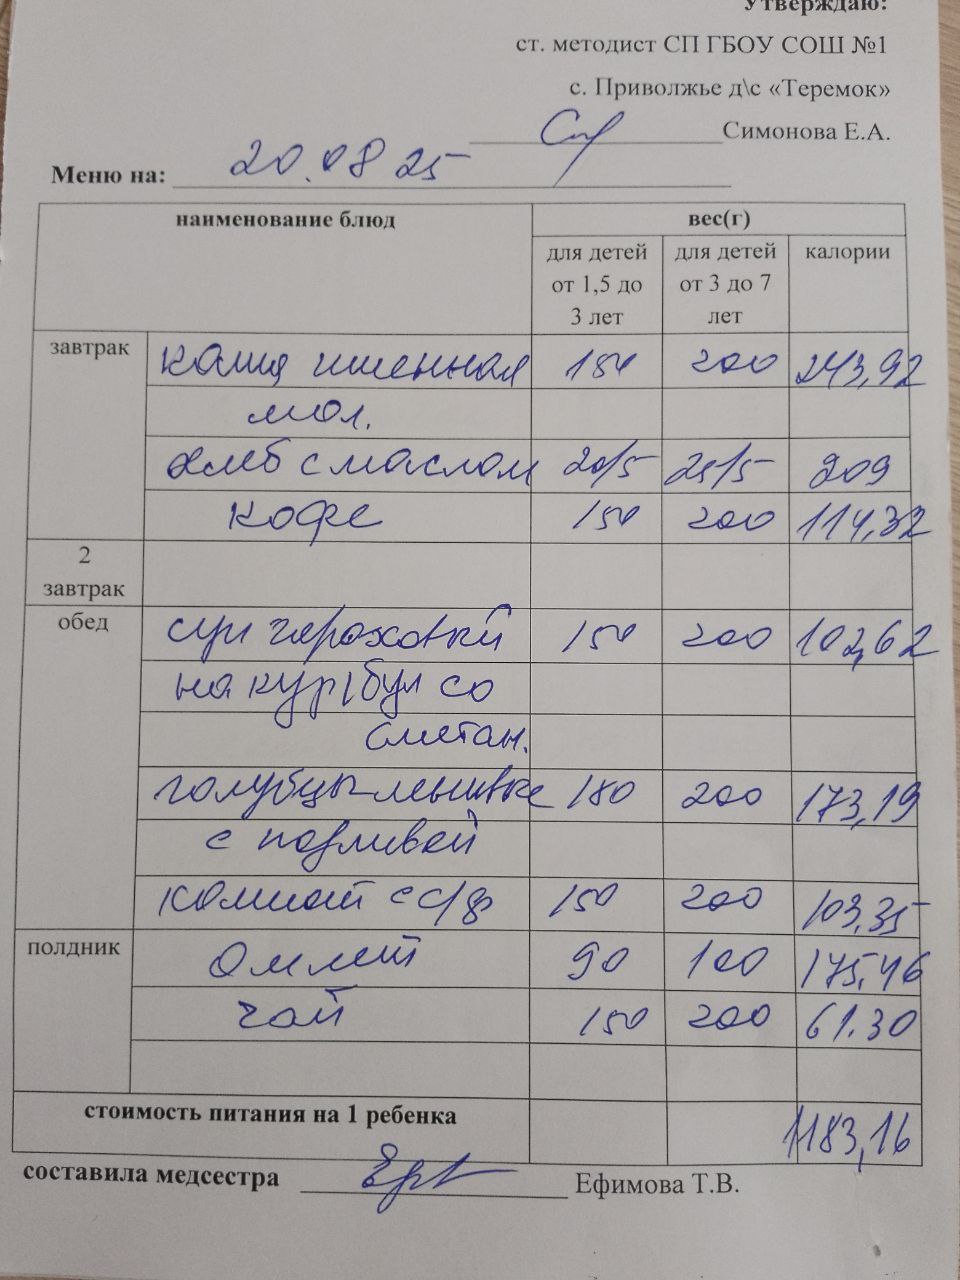 Утверждаю:
ст. методист СП ГБОУ СОШ №1
с. Приволжье д\с «Теремок»
Симонова Е.А.
Меню на: 20.08 25
наименование блюд вес(г)
для детей от 1,5 до 3 лет для детей от 3 до 7 лет калории
завтрак каша пшенная 150 200 243,92
мол.
хлеб с маслом 20/5 25/5 209
кофе 150 200 114,32
2 завтрак
обед суп гороховый 150 200 102,62
на кур/бул со
сметан.
голубцы ленивые 180 200 173,19
с подливой
компот с с/ф 150 200 103,35
полдник Омлет 90 100 175,46
чай 150 200 61.30
стоимость питания на 1 ребенка 1183,16
составила медсестра Ефимова Т.В.